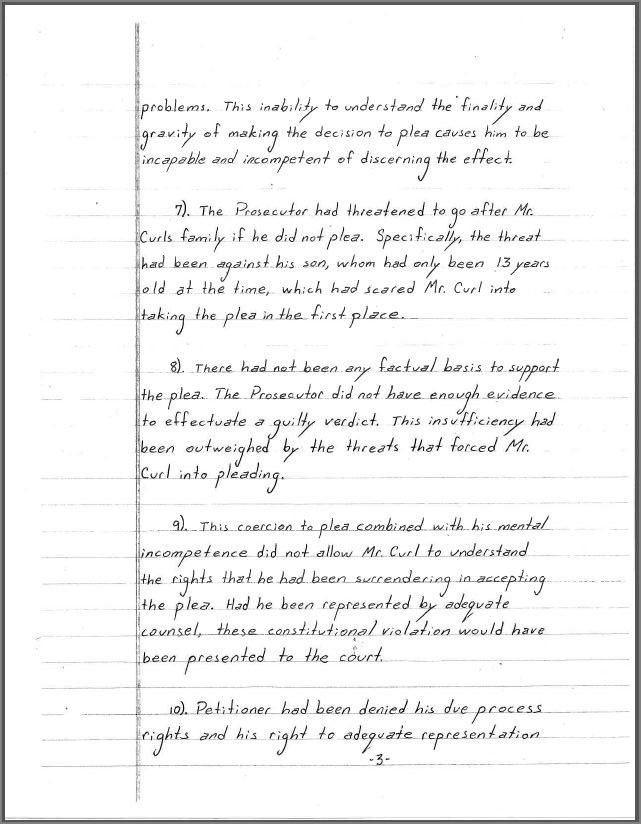 problems. This inability to understand the finality and
gravity of making the decision to plea causes him to be
incapable and incompetent of discerning the effect.
7). The Prosecutor had threatened to go after Mr.
Curls family if he did not plea. Specifically, the threat
had been against his son, whom had only been 13 years
old at the time, which had scared Mr. Curl into
taking the plea in the first place.
8). There had not been any factual basis to support
the plea. The Prosecutor did not have enough evidence
to effectuate a guilty verdict. This insufficiency had
been outweighed by the threats that forced Mr.
Curl into pleading.
9). This coercion to plea combined with his mental
incompetence did not allow Mr. Curl to understand
the rights that he had been surrendering in accepting
the plea. Had he been represented by adequate
counsel, these constitutional violation would have
been presented to the court.
10). Petitioner had been denied his due process
rights and his right to adequate representation
-3-